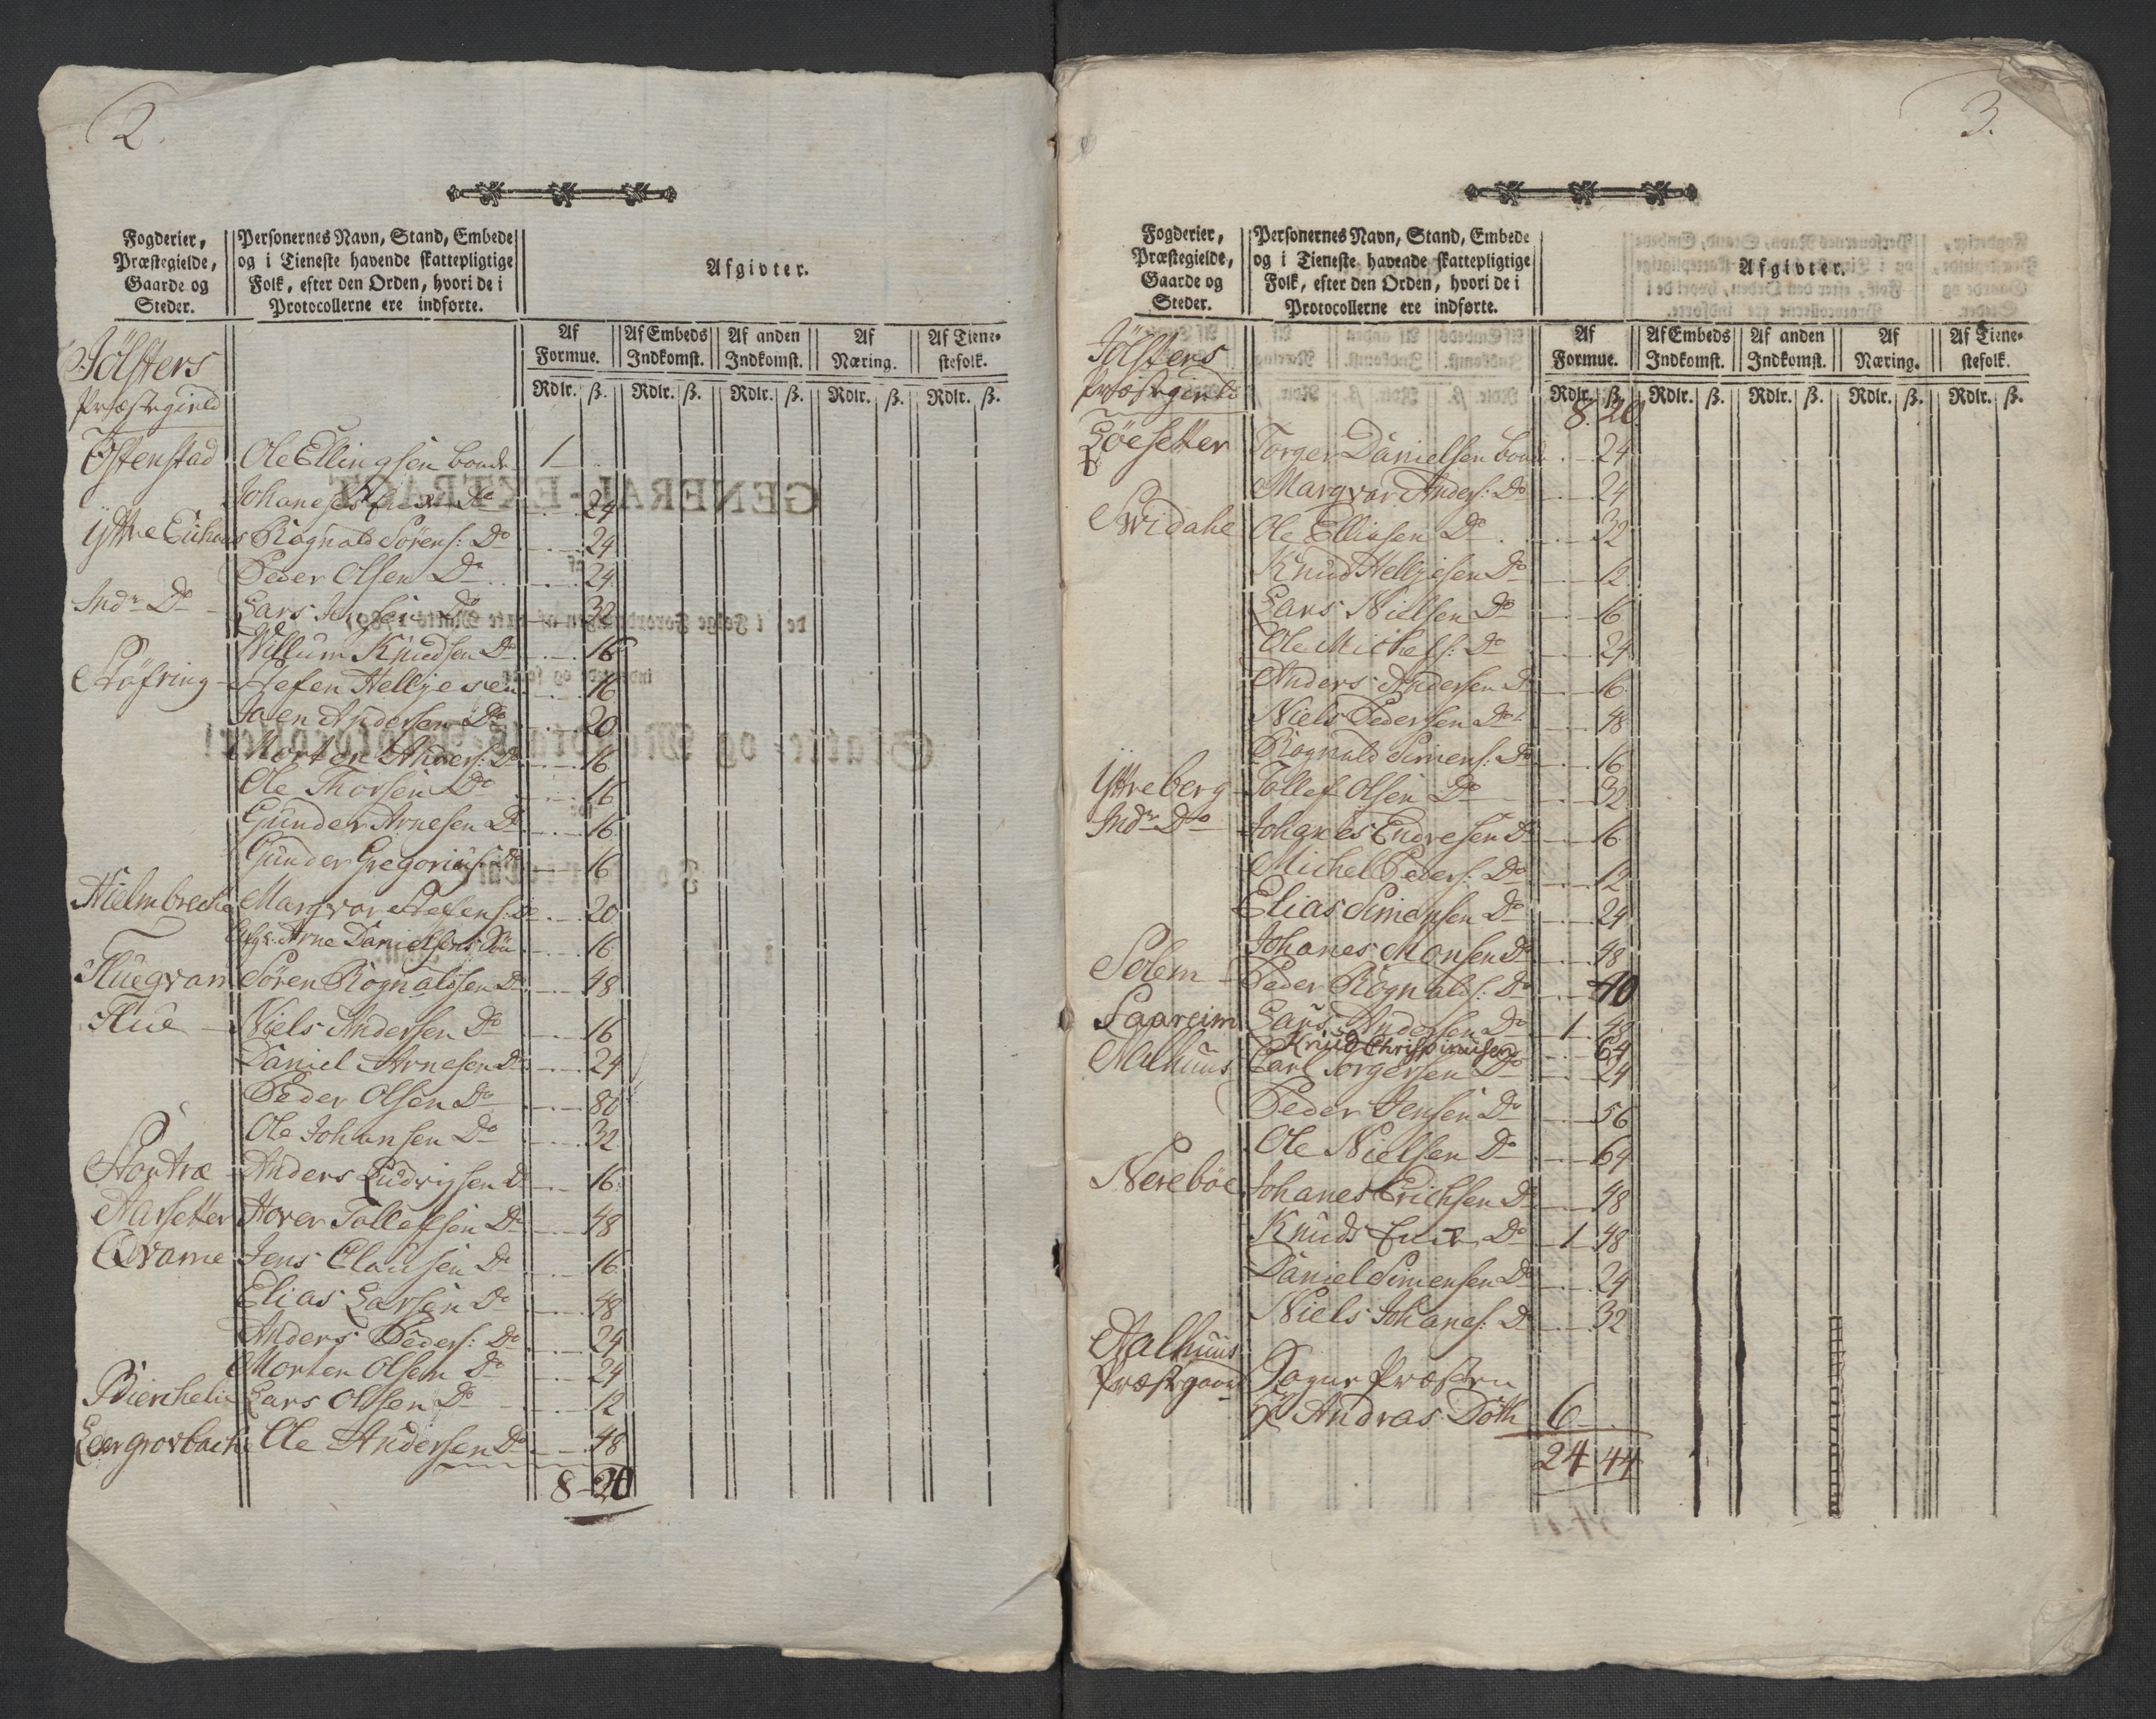 2.
Fogderier, Præstegielde, Gaarde og Steder. Personernes Navn, Stand, Embede og i Tieneste havende skattepligtige Folk, efter den Orden, hvori de i Protocollerne ere indførte. Afgivter.
Af Formue. Af Embeds Indkomst. Af anden Indkomst. Af Næring. Af Tienestefolk.
Rdlr. ß. Rdlr. ß. Rdlr. ß. Rdlr. ß. Rdlr. ß.
Jölsters
Præstegield
Østenstad Ole Ellingsen bonde 1
Johanes Do 24
Yttre Eichaas Rognald Sörens: Do 24
Peder Olsen Do 24
Indr Do Lars Jensen Do 32
Willum Knudsen Do 16
Stöfring Stefen Helljesen 16
Joen Andersen Do 20
Morten Anders: Do 16
Ole Thorsen Do 16
Gunder Arnesen Do 16
Gunder Gregorius: Do 16
Hielmbreche Marqvor Stefens: Do 20
Arne Danielsens 16
Fluegvarn Sören Rognaldsen Do 48
Flue Niels Andersen Do 16
Daniel Arnesen Do 24
Peder Olsen Do 80
Ole Johansen Do 32
Stortræ Anders Ludvigsen Do 16
Aarsetter Hover Tollefsen Do 48
Qvame Jens Clausen Do 16
Elias Larsen Do 48
Anders Peders: Do 24
Morten Olsen Do 24
Bierchelie Lars Olsen Do 12
Leergrovbache Ole Andersen Do 48
8 - 20
3.
Fogderier, Præstegielde, Gaarde og Steder. Personernes Navn, Stand, Embede og i Tieneste havende skattepligtige Folk, efter den Orden, hvori de i Protocollerne ere indførte. Afgivter.
Af Formue. Af Embeds Indkomst. Af anden Indkomst. Af Næring. Af Tienestefolk.
Rdlr. ß. Rdlr. ß. Rdlr. ß. Rdlr. ß. Rdlr. ß.
Jölsters
Præstegield
8. 20.
Söesetter Torger Danielsen bonde 24
Marqvar Anders: Do 24
Svidahl Ole Ellingsen Do 32
Knud Helljesen Do 12
Lars Nielsen Do 16
Ole Michels: Do 24
Anders Andersen Do 16
Niels Pedersen Do 48
Rognald Simens: Do 16
Yttreberg Tollef Olsen Do 32
Indr Do Johanes Endresen Do 16
Michel Peders: Do 12
Elias Simensen Do 24
Johanes Monsen Do 48
Solem Peder Rognalds: Do 40
Saareim Lars Andersen Do 1 48
Knud Christiansen 64
Aalhuus Carl Torgersen Do 24
Peder Jensen Do 56
Ole Nielsen Do 64
Nereböe Johanes Erichsen Do 48
Knuds Enke Do 1 48
Daniel Simensen Do 24
Niels Johanes: Do 32
Aalhuus
Præstgaard Sogne Præsten
Hr Andras Döth 6
24 44